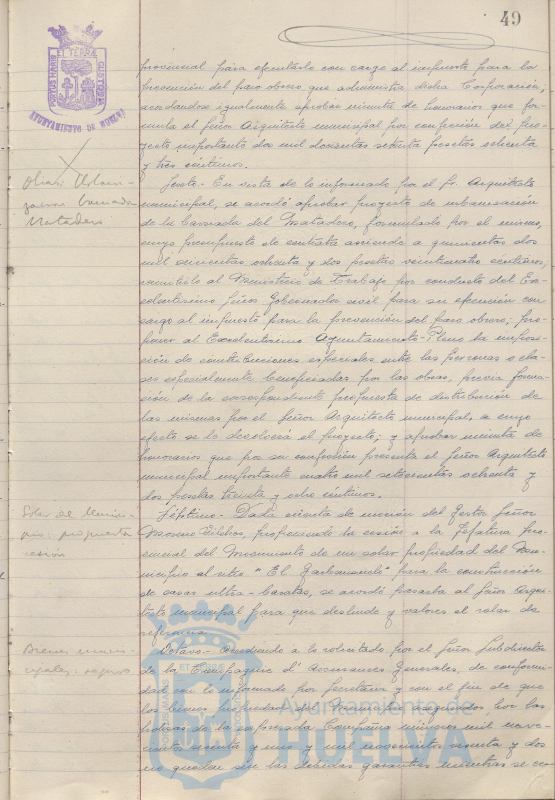 49
PORTUS MARIS ET TERRAE CUSTODIA
AYUNTAMIENTO DE HUELVA
provincial para ejecutarlo con cargo al impuesto para la
prevención del paro obrero que administra dicha Corporación,
acordándose igualmente aprobar minuta de honorarios que for-
mula el Señor Arquitecto municipal por confección del pro-
yecto importante dos mil doscientas setenta pesetas ochenta
y tres céntimos.
Obras Urbani-
zación barriada
Matadero
Sexto.- En vista de lo informado por el Sr. Arquitecto
municipal, se acordó aprobar proyecto de urbanización
de la barriada del Matadero, formulado por el mismo,
cuyo presupuesto de contrata asciende a quinientas dos
mil ochenta y dos pesetas veinticuatro céntimos,
remitirlo al Ministerio de Trabajo por conducto del Ex-
celentísimo Señor Gobernador civil para su ejecución con
cargo al impuesto para la prevención del paro obrero; pro-
poner al Excelentísimo Ayuntamiento Pleno la imposi-
ción de contribuciones especiales entre las personas o cla-
ses especialmente beneficiadas por las obras, previa forma-
ción de la correspondiente propuesta de distribución de
las mismas por el Señor Arquitecto municipal, a cuyo
efecto se le devolverá el proyecto; y aprobar minuta de
honorarios que por su confección presenta el Señor Arquitecto
municipal importante cuatro mil setecientas ochenta y
dos pesetas treinta y ocho céntimos.
Solar del Munici-
pio: propuesta
cesión
Séptimo.- Dada cuenta de moción del Gestor Señor
Moreno, proponiendo la cesión a la Jefatura Pro-
vincial del Movimiento de un solar propiedad del Mu-
nicipio al sitio "El" para la construcción
de casas ultra-baratas, se acordó pasarla al Señor Arqui-
tecto municipal para que deslinde y valore el solar de
referencia.
Bienes muni-
cipales: seguro
Octavo.- Accediendo a lo solicitado por el Señor Subdirector
de la Compagnie d' Assurances Generales, de conformi-
dad con lo informado por Secretaría y con el fin de que
los bienes propiedad del Municipio asegurados por las
pólizas de la expresada Compañía número mil nove-
cientos y uno y mil novecientos y dos
no queden sin las debidas garantías mientras se
Ayuntamiento de
HUELVA